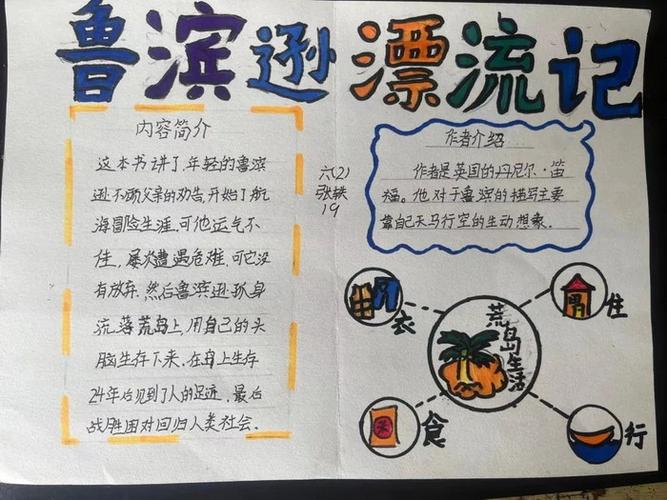 鲁滨逊漂流记
内容简介
这本书讲了,年轻的鲁滨
逊不顾父亲的劝告,开始了航
海冒险生涯,可他运气不
佳,屡次遭遇危难,可它没
有放弃.然后鲁滨逊孤身
流落荒岛上,用自己的头
脑生存下来.在岛上生存
24年后见到了人的足迹,最后
战胜困对回归人类社会.
六(2)
张轶
19
作者介绍
作者是英国的丹尼尔·笛
福。他对于鲁滨的描写主要
靠自己天马行空的生动想象.
荒岛生活
衣
住
食
行